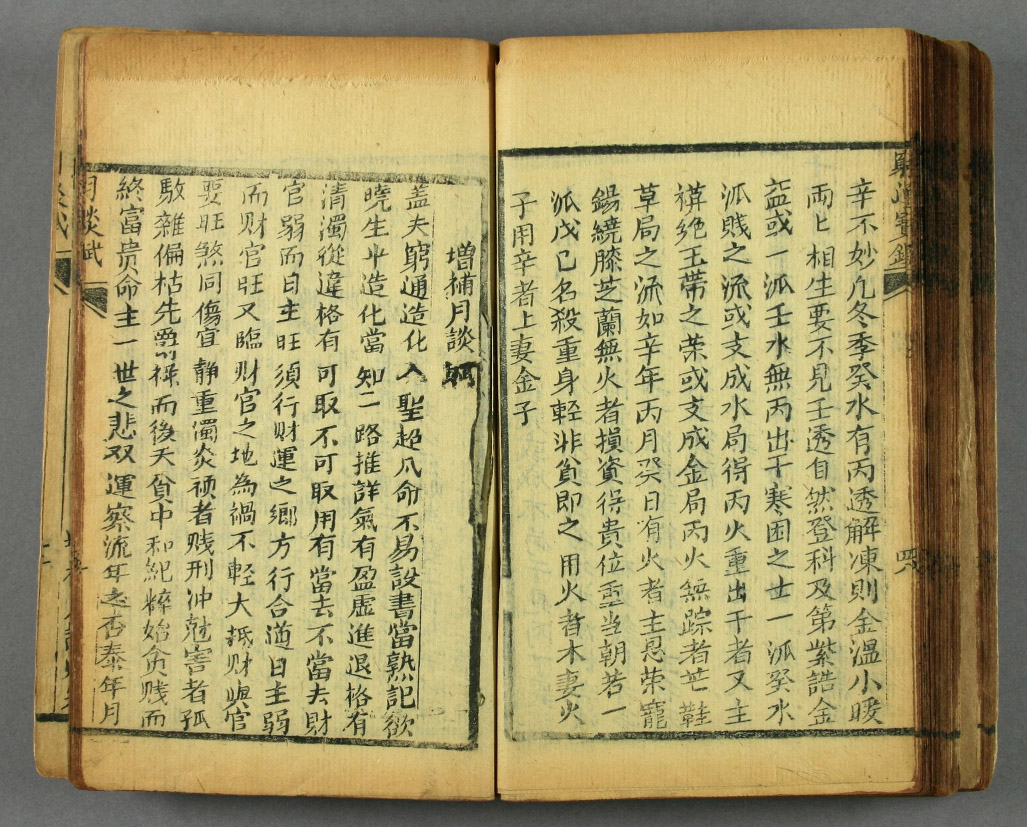 辛不妙凢冬季癸水有丙透解凍則金溫小暖
兩匕相生要不見壬透自然登科及第紫誥金
或一派壬水無丙出干寒困之士一派癸水
派賤之流或支成水局得丙火重出干者又主
絕王帶之荣或支成金局丙火無踪者芒鞋
草局之流如辛年丙月癸日有火者主恩荣寵
錫繞膝芝蘭無火者損資得貴位重当朝若一
派戊己名殺重身輕非貧即之用火者木妻火
子用辛者上妻金子
增補月談賦
盖夫窮通造化入聖超凡命不易設書當熟記欲
曉生斗造化當知二路推詳氣有盈虛進退格有
清濁從違格有可取不可取用有當去不當去財
官弱而日主旺須行财運之鄉方行合道日主弱
而财官旺又臨财官之地為禍不輕大抵财與官
要旺煞同傷宜靜重濁炎顽者贱刑冲尅害者孤
駁雜偏枯先而後夭貧中和純粹始貪贱而
終富貴命主一世之悲双運察流年之否泰年月
月談賦